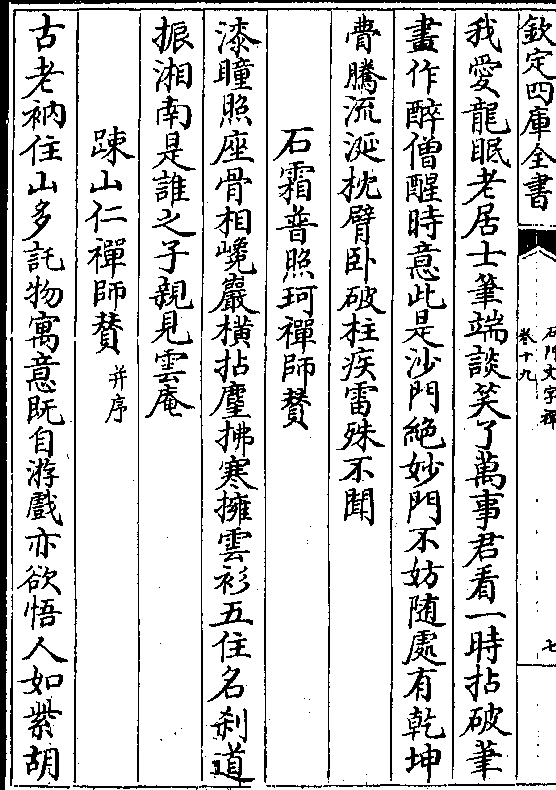 欽定四庫全書
石門文字禪
卷十九
七
我愛龍眠老居士筆端談笑了萬事君看一時拈破筆
畫作醉僧醒時意此是沙門絶妙門不妨随處有乾坤
費騰流涎枕臂卧破柱疾雷殊不聞
石霜普照珂禪師賛
漆瞳照座骨相巉巖横拈麈拂寒擁雲衫五住名刹道
振湘南是誰之子親見雲庵
踈山仁禪師賛并序
古老衲住山多託物寓意既自游戲亦欲悟人如紫胡